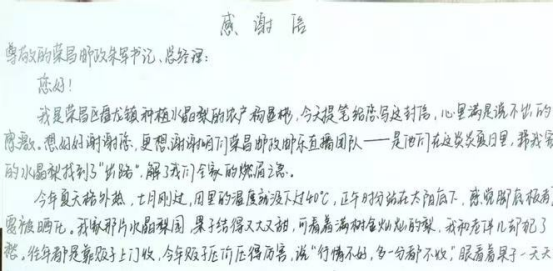 感谢信
尊敬的荣昌邮政朱军书记、总经理:
您好!
我是荣昌区盘龙镇种植水晶梨的农户杨显彬,今天提笔给您写这封信,心里满是说不出的
感激。想好好谢谢您,更想谢谢咱们荣昌邮政邮乐直播团队——是他们在这炎炎夏日里,替我家
的水晶梨找到了“出路”,解了我们全家的燃眉之急。
今年夏天格外热,七月刚过,田里的温度就没下过40℃,正午时分站在太阳底下,感觉脚底板都
要被晒化。我家那片水晶梨园,果子结得又大又甜,可看着满树金灿灿的梨,我和老伴儿却犯了
愁。往年都是靠贩子上门收,今年贩子压价压得厉害,说“行情不好,多一分都不收”眼看着果子一天天